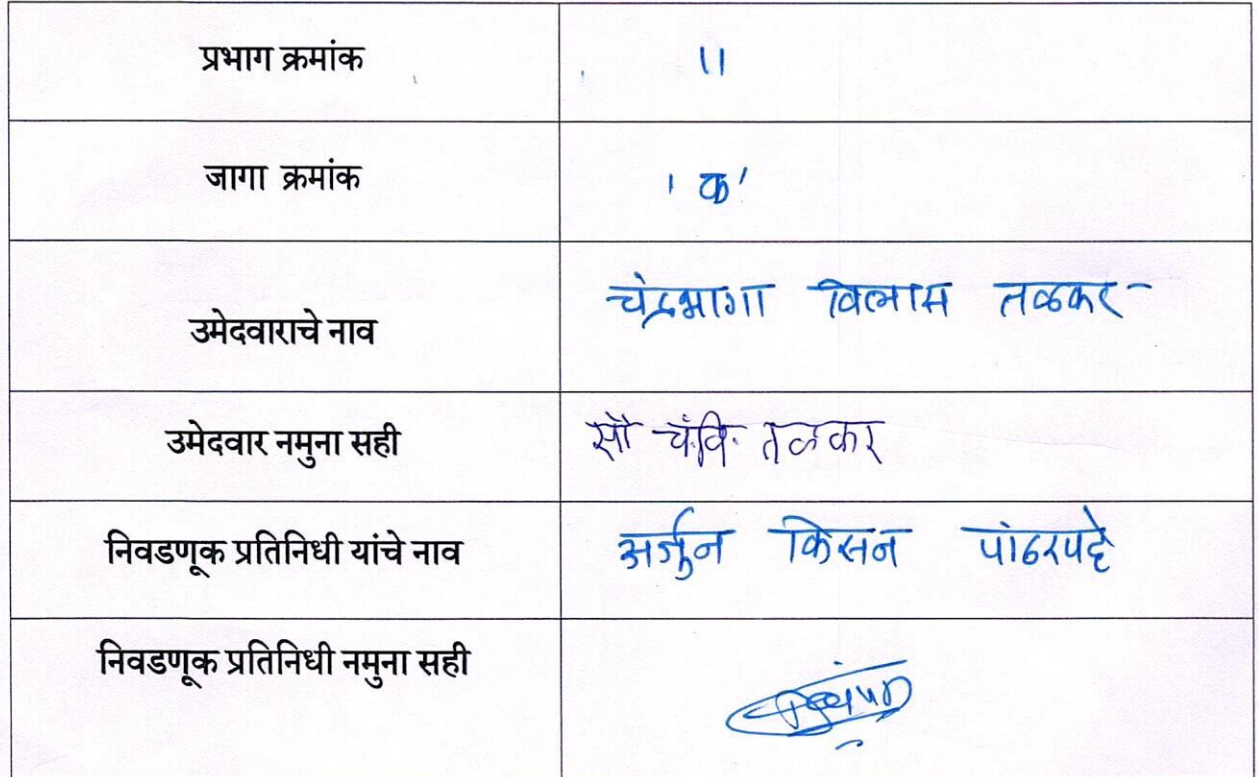 प्रभाग क्रमांक 11
जागा क्रमांक 'क'
उमेदवाराचे नाव चंद्रभागा विलास तळकर
उमेदवार नमुना सही सौ चं.वि. तळकर
निवडणूक प्रतिनिधी यांचे नाव अर्जुन किसन पांढरपट्टे
निवडणूक प्रतिनिधी नमुना सही